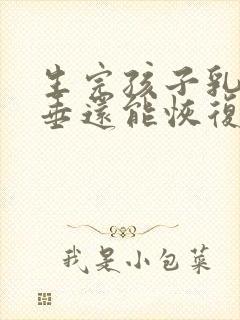 生完孩子乳
垂還能恢復
我是小包菜